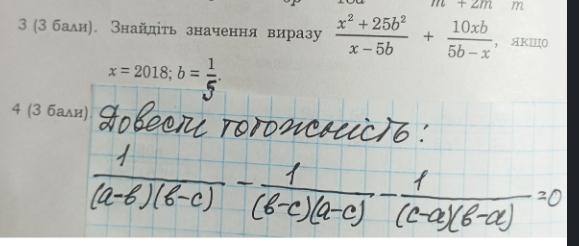 3 (3 бали). Знайдіть значення виразу (x² + 25b²)/(x − 5b) + 10xb/(5b − x), якщо
x = 2018; b = 1/5.
4 (3 бали). Довести тотожність:
1/((a−b)(b−c)) − 1/((b−c)(a−c)) − 1/((c−a)(b−a)) = 0